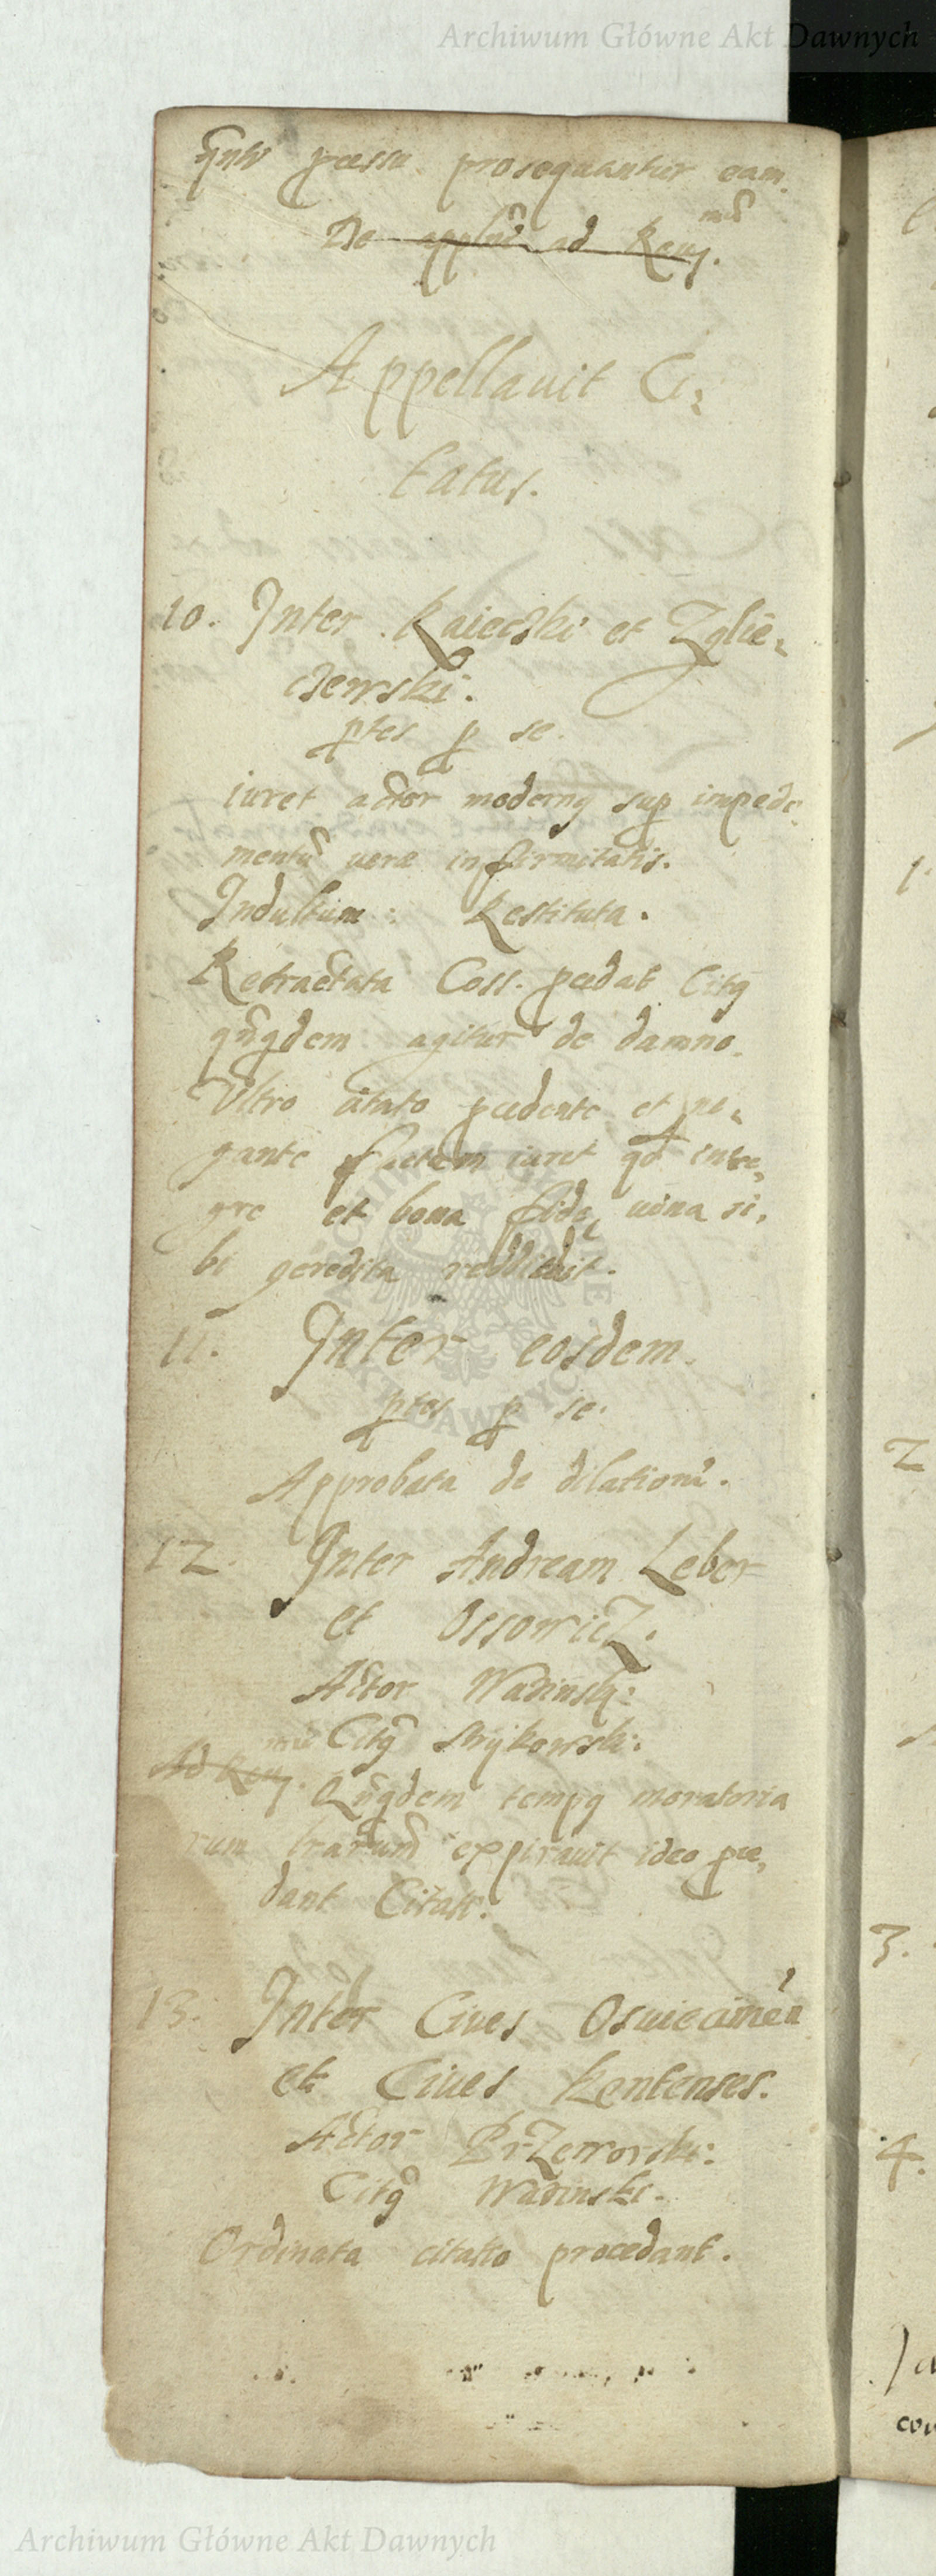 Archiwum Główne Akt Dawnych
prosequantur eam.
De ad
Appellauit Ci,
tatus.
10. Inter Kaieczki et Zgliē,
czewski.
ptes p se.
iuret actor modernq sup impedi
mentū uerae infirmitatis.
Indultum: Restituta.
Retractata Coss. pcedat Citq
agitur de damno.
Ultro citato pcedente et ne,
gante factum iuret qd inte,
gre et bona fide, uina si,
bi reddiderit.
11. Inter eosdem.
ptes p se.
Approbata de dilationi.
12. Inter Andream Leber
et OssowicZ.
Actor Wadinsk:
Citq Stryikowski.
tempq moratoria
rum lrarum expirauit ideo pce,
dant Citati.
13. Inter Ciues Osuiecimen
et Ciues Kentenses.
Actor PrZerowski:
Citq Wadinski.
Ordinata citatio procedant.
Archiwum Główne Akt Dawnych